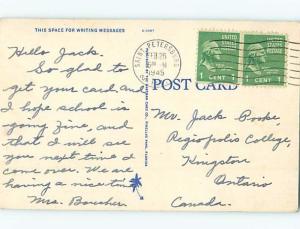 THIS SPACE FOR WRITING MESSAGES
SAINT PETERSBURG
1945
UNITED STATES POSTAGE
1 CENT 1
1 CENT 1
POST CARD
Hello Jack.
So glad to
get your card and
I hope school is
going fine, and
that I will see
you next time I
come over. We are
having a nice time
Mrs. Boucher.
Mr. Jack Rooke,
Regiopolis College,
Kingston
Ontario
Canada.